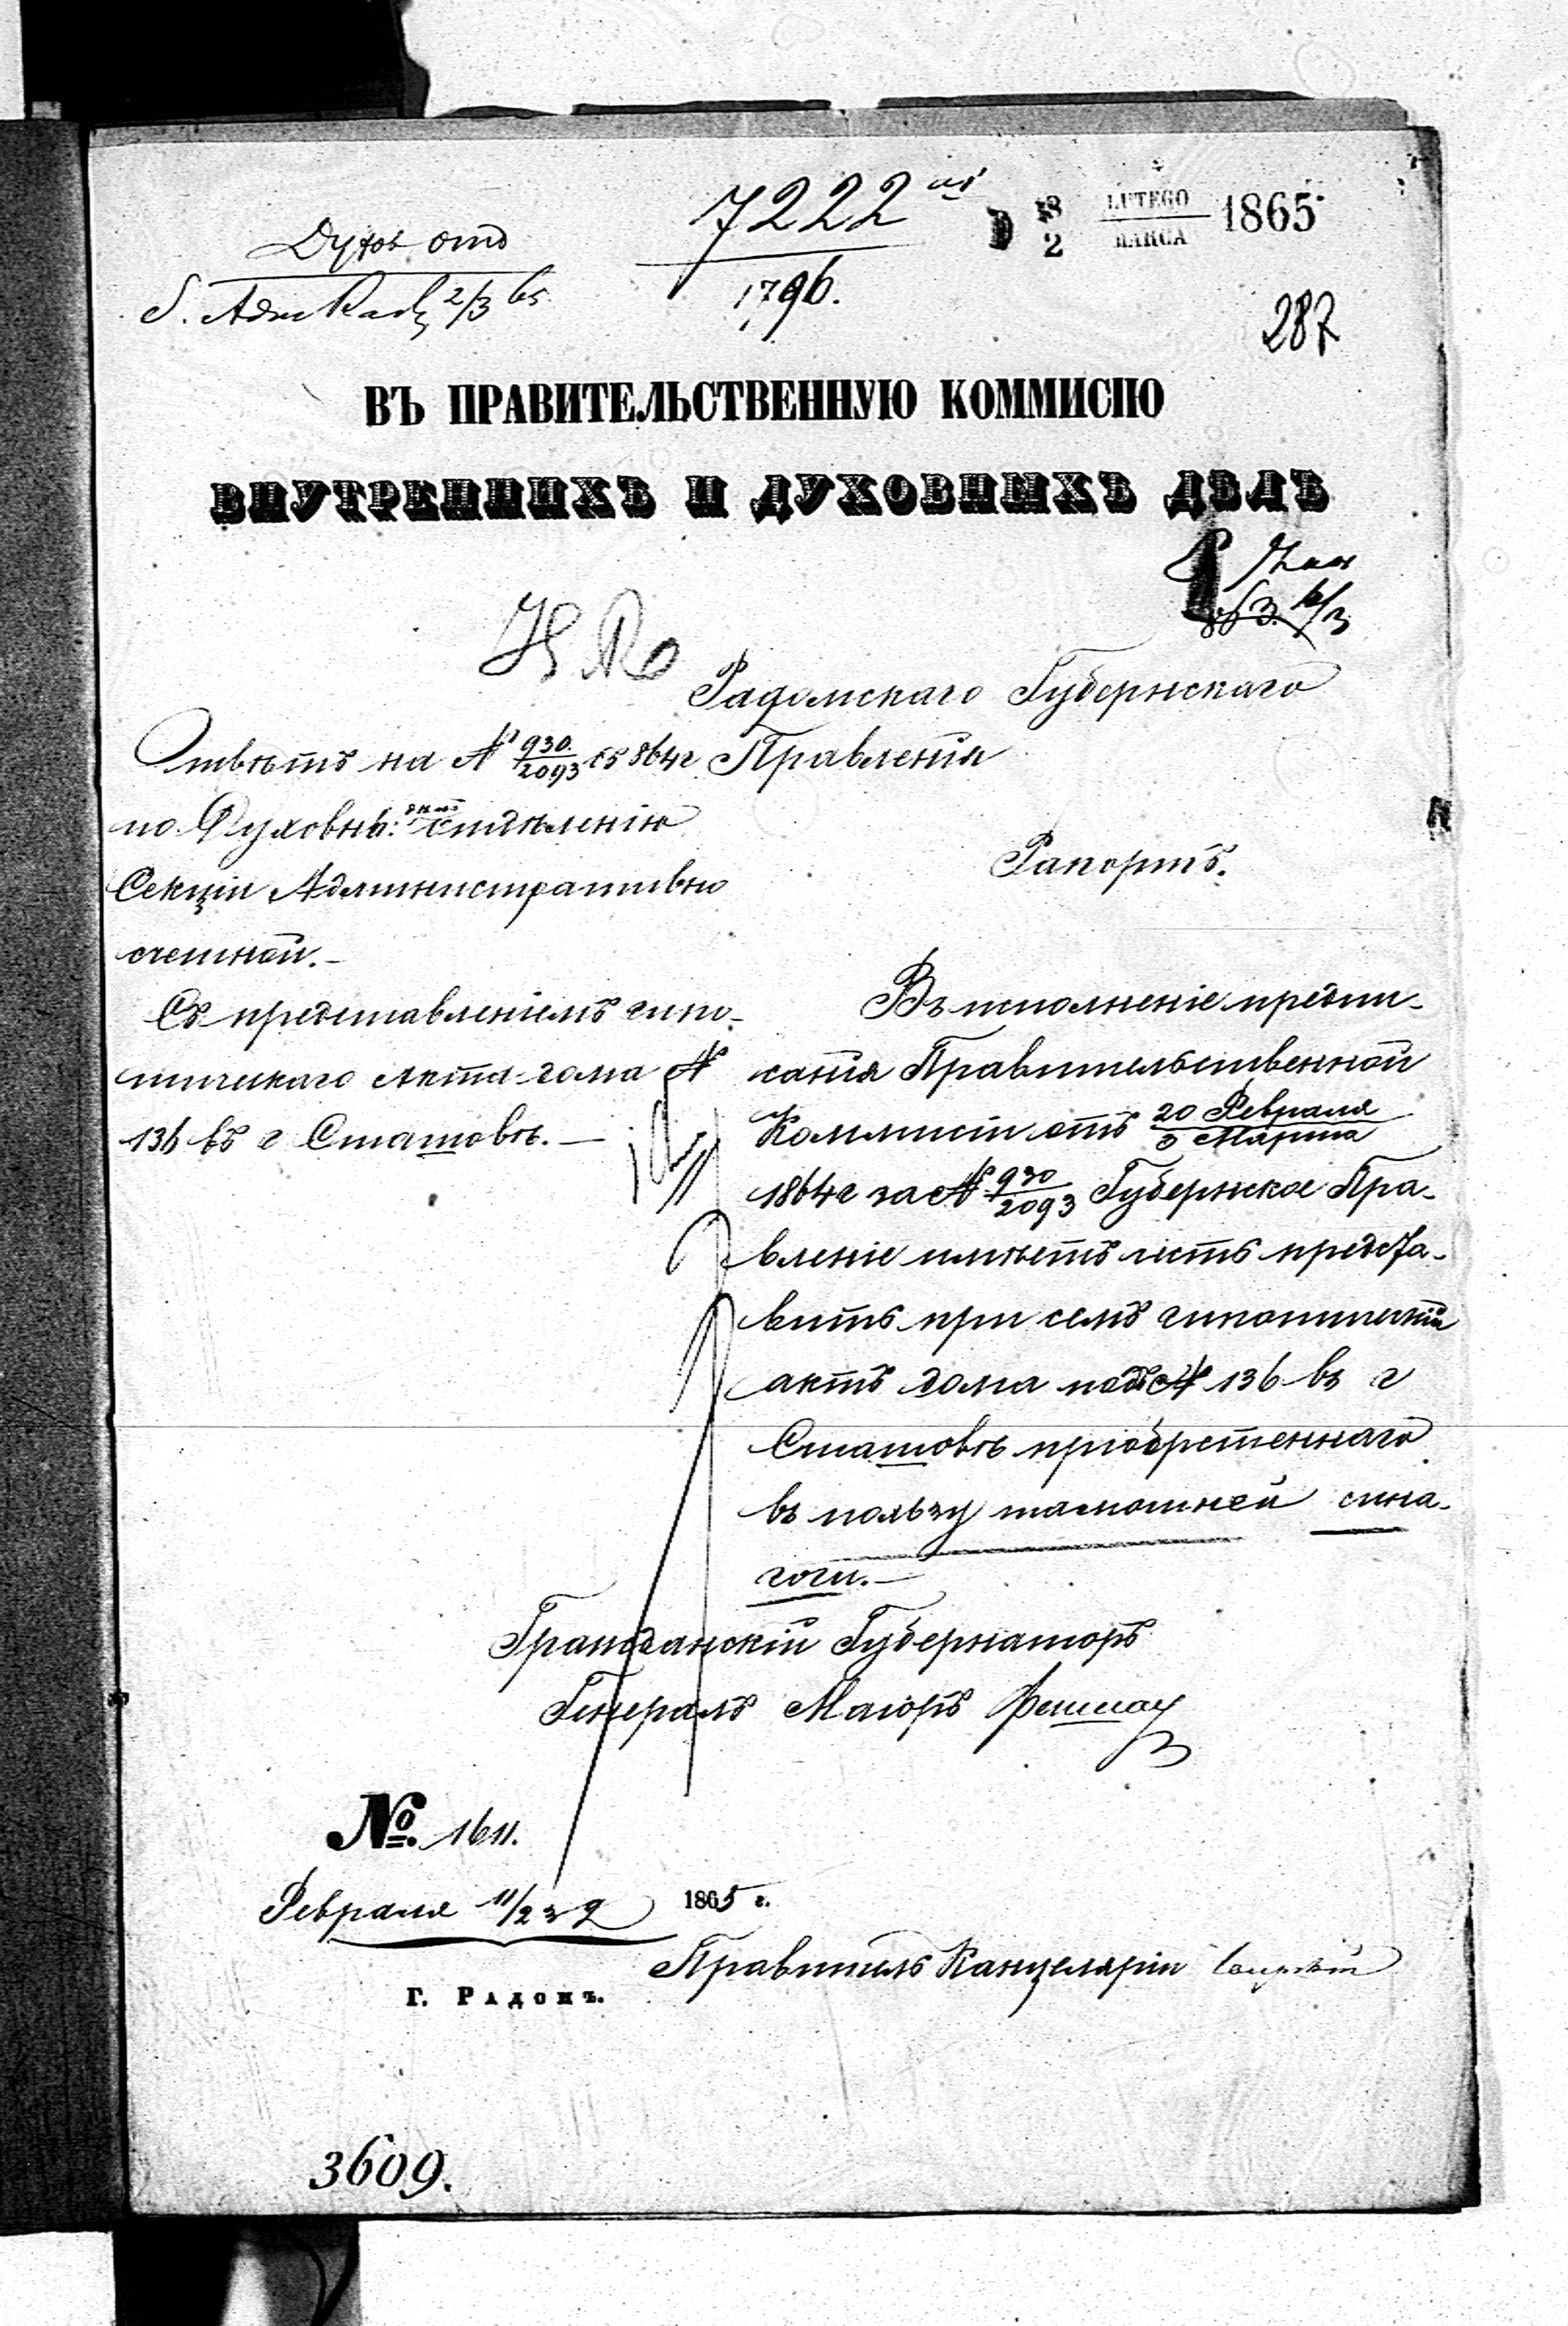 7222
1796.
18/2 LUTEGO/MARCA 1865
Духов отд
287
ВЪ ПРАВИТЕЛЬСТВЕННУЮ КОММИСІЮ
ВНУТРЕННИХЪ И ДУХОВНЫХЪ ДѢЛЪ
Радомскаго Губернскаго
Правленія
Рапортъ.
Отвѣтъ на № 930/2093 съ 864г
по Духовн: отдѣленію
Секціи Административно
счетной.-
Съ представленіемъ гипо-
тическаго акта дома №
136 въ г Сташовѣ.—
Въ исполненіе предпи-
санія Правительственной
Коммисіи отъ 20 Февраля/3 Марта
1864г за № 930/2093 Губернское Пра-
вленіе имѣетъ честь предста-
вить при семъ гипотическій
актъ дома подъ № 136 въ г
Сташовѣ пріобрѣтеннаго
въ пользу тамошней сина-
гоги.—
Гражданскій Губернаторъ
Генералъ Маіоръ
№. 1611.
Февраля 11/23 д 1865 г.
Г. РАДОМЪ.
Правитель Канцеляріи
3609.